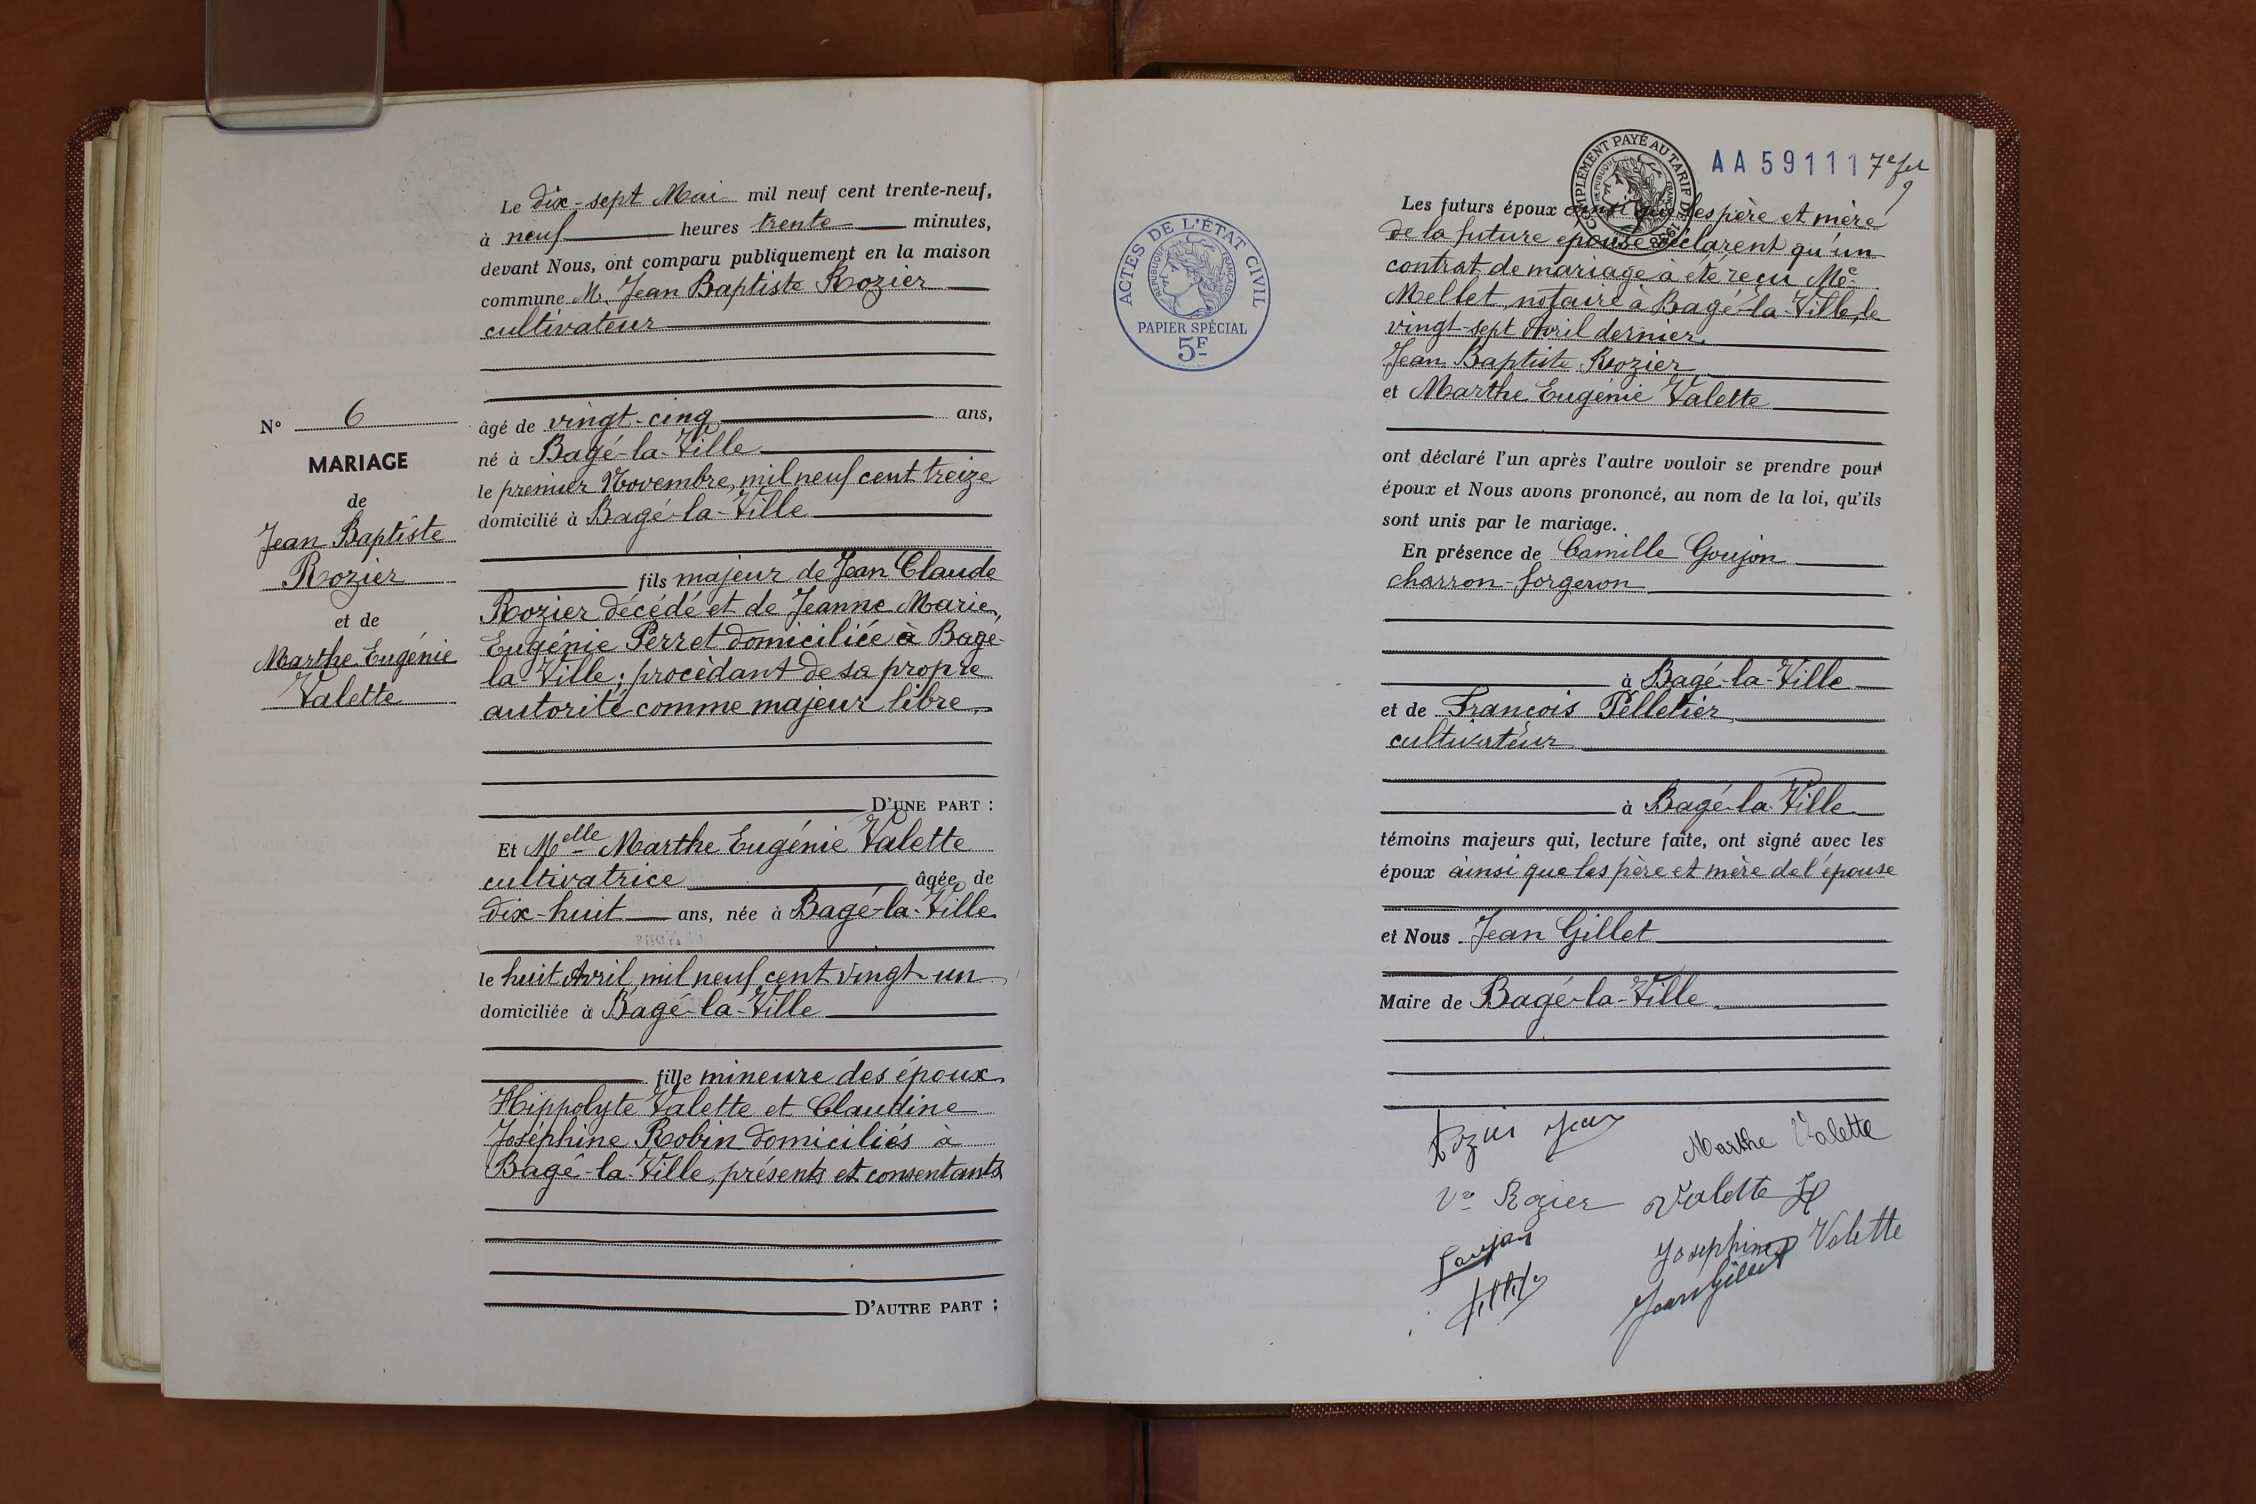 Le dix-sept Mai mil neuf cent trente-neuf,
à neuf heures trente minutes,
devant Nous, ont comparu publiquement en la maison
commune M. Jean Baptiste Rozier
cultivateur
N° 6
MARIAGE
de
Jean Baptiste
Rozier
et de
Marthe Eugénie
Valette
âgé de vingt-cinq ans,
né à Bagé-la-Ville
le premier Novembre, mil neuf cent treize
domicilié à Bagé-la-Ville
fils majeur de Jean Claude
Rozier décédé et de Jeanne Marie
Eugénie Perret domiciliée à Bagé-
la-Ville; procèdant de sa propre
autorité comme majeur libre.
D'UNE PART :
Et Melle Marthe Eugénie Valette
cultivatrice âgée de
dix-huit ans, née à Bagé-la-Ville
le huit Avril mil neuf cent vingt-un
domiciliée à Bagé-la-Ville
fille mineure des époux
Hippolyte Valette et Claudine
Joséphine Robin domiciliés à
Bagé-la-Ville, présents et consentants
D'AUTRE PART ;
ACTES DE L'ÉTAT CIVIL
RÉPUBLIQUE FRANÇAISE
PAPIER SPÉCIAL
5F
COMPLÉMENT PAYÉ AU TARIF DE
RÉPUBLIQUE FRANÇAISE
AA 59111 7e
9
Les futurs époux ainsi que les père et mère
de la future épouse déclarent qu'un
contrat de mariage à été reçu Me
Mellet, notaire à Bagé-la-Ville, le
vingt-sept Avril dernier.
Jean Baptiste Rozier
et Marthe Eugénie Valette
ont déclaré l'un après l'autre vouloir se prendre pour
époux et Nous avons prononcé, au nom de la loi, qu'ils
sont unis par le mariage.
En présence de Camille Goujon
charron-forgeron
à Bagé-la-Ville
et de François Pelletier
cultivateur
à Bagé-la-Ville
témoins majeurs qui, lecture faite, ont signé avec les
époux ainsi que les père et mère de l'épouse
et Nous Jean Gillet
Maire de Bagé-la-Ville
Rozier Jean
Marthe Valette
Ve Rozier
Valette H
Goujon
Josephine Valette
Jean Gillet